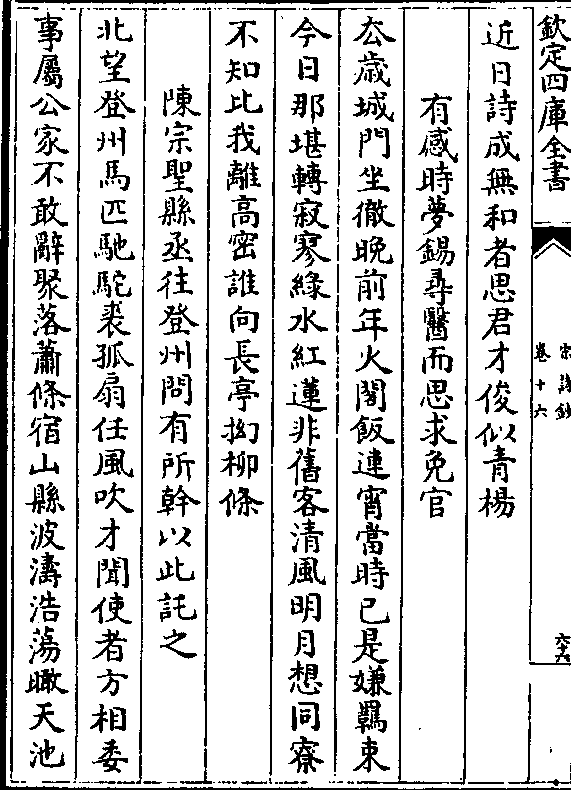 欽定四庫全書
宋詩鈔
卷十六
六十六
近日詩成無和者思君才俊似青楊
有感時夢錫尋醫而思求免官
厺歲城門坐徹晚前年火閣飯連宵當時已是嫌羈束
今日那堪轉寂寥緣水紅蓮非舊客清風明月想同寮
不知比我離高密誰向長亭拗柳條
陳宗聖縣丞往登州問有所幹以此託之
北望登州馬匹馳駝裘孤扇任風吹才聞使者方相委
事屬公家不敢辭聚落蕭條宿山縣波濤浩蕩瞰天池